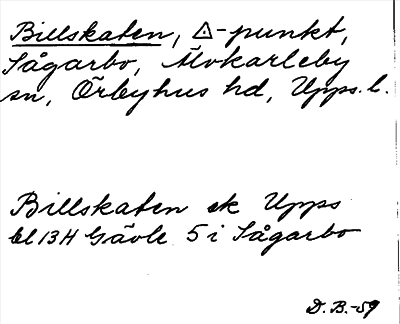 Billskaten, △-punkt,
Sågarbo, Älvkarleby
sn, Örbyhus hd, Upps. l.
Billskaten ek Upps
bl 13H Gävle 5 i Sågarbo
D. B.-59